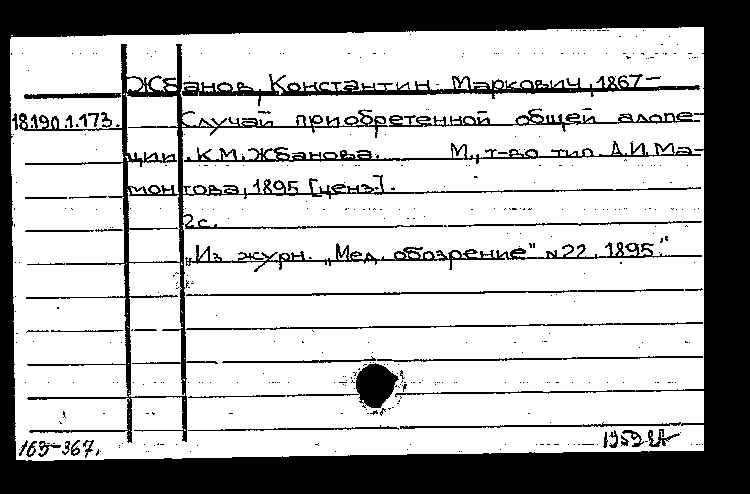 Жбанов, Константин Маркович, 1867–
18.190.1.173. Случай приобретенной общей алопе-
ции. К.М. Жбанова. М., т-во тип. А.И. Ма-
монтова, 1895 [ценз.].
2 с.
„Из журн. „Мед. обозрение" № 22, 1895."
163-367. 1959